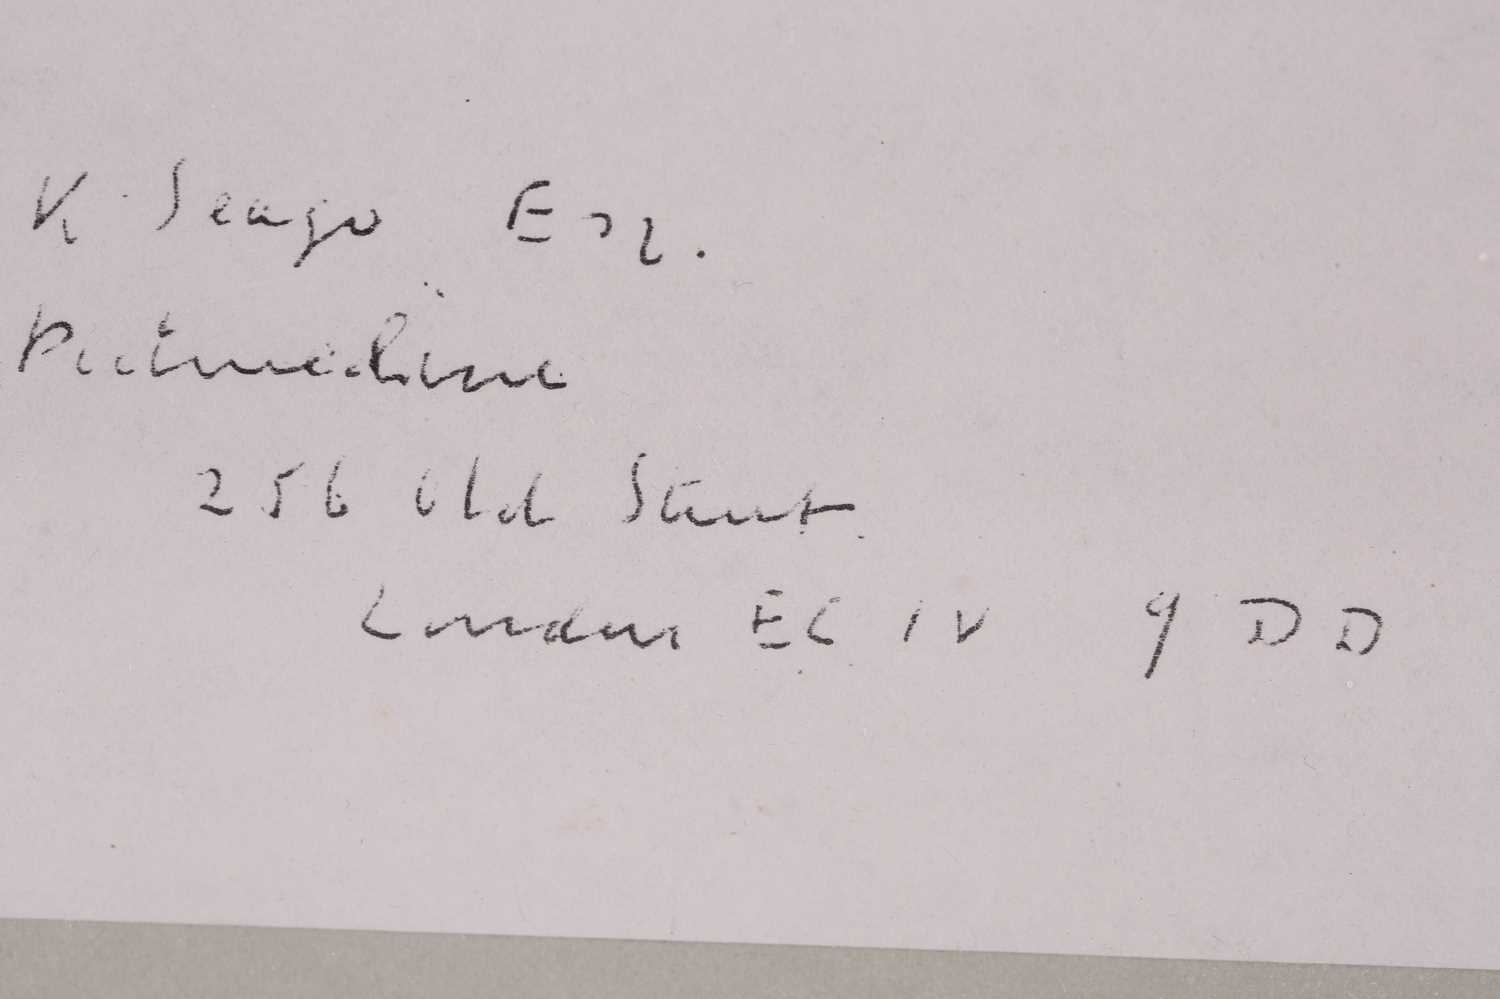 K. Seago Esq.
256 Old Street
London EC1V 9DD